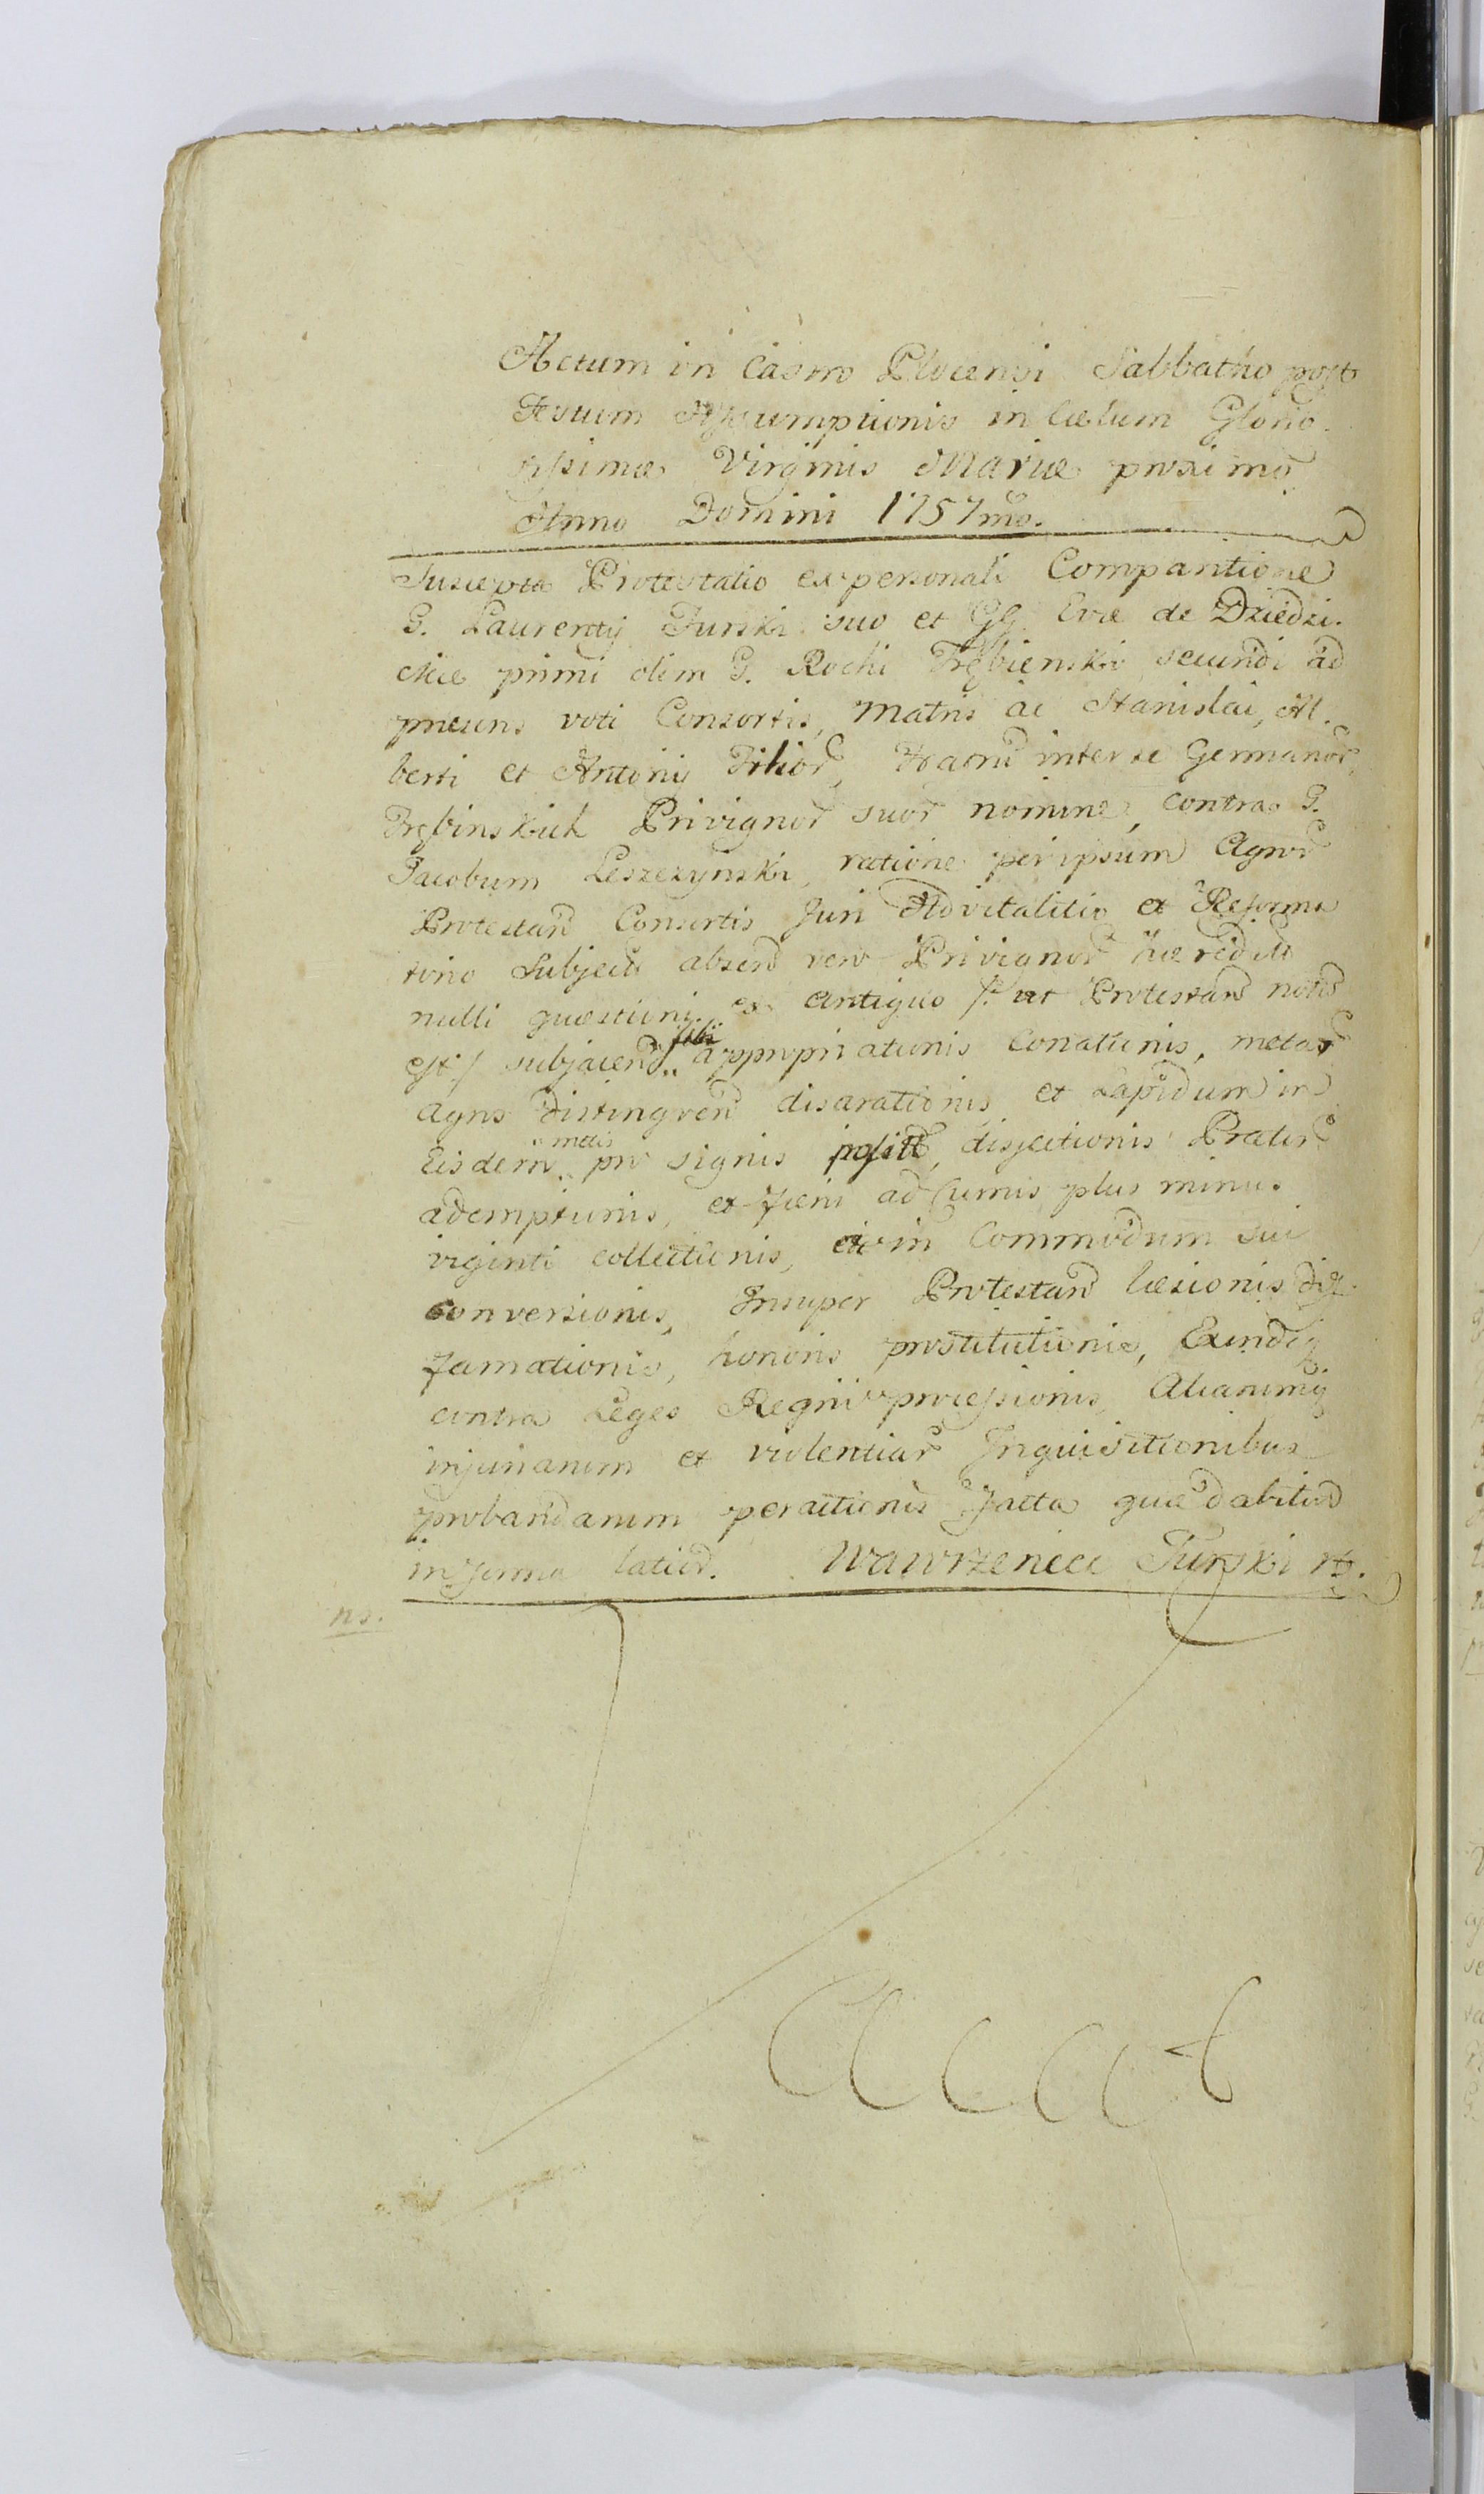 Actum in Castro Plocensi Sabbatho post
Festum Assumptionis in Cœlum Glorio-
sissimæ Virginis Mariæ proximo
Anno Domini 1757mo.
Suscepta Protestatio ex personali Comparitione
G. Laurentij Turski suo et GG Evæ de Dziedzi-
ckie primi olim G. Rochi Trębienski secundi ad
præsens voti Consortis, Matris ac Stanislai, Al-
berti et Antonij Filior, Fratru inter se Germanor,
Trębinskich Privignor suor nomine, contra G.
Jacobum Leszczynski, ratione per ipsum Agror
Protestan Consortis Juri Advitalitio et Reforma
torio Subject absen vero Privignor hæredit
nulli quæstioni ex antiquo /: ut Protestan not
est :/ subjacen sibi appropriationis Conationis, metar
Agros distingven disarationis et Lapidum in
Eisdem metis pro signis posit, disjectionis Prator
ademptionis, et fœni ad Cumis plus minus
viginti collectionis, in Commodum sui
conversionis, Insuper Protestan læsionis dif-
famationis, honoris prostitutionis, Exindeq
contra Leges Regni processionis, Aliarumq
injuriarum et violentiar Inquisitionibus
probandarum peractionis facta quæ dabitur
in forma latior. Wawrzeniec Turski
ns.